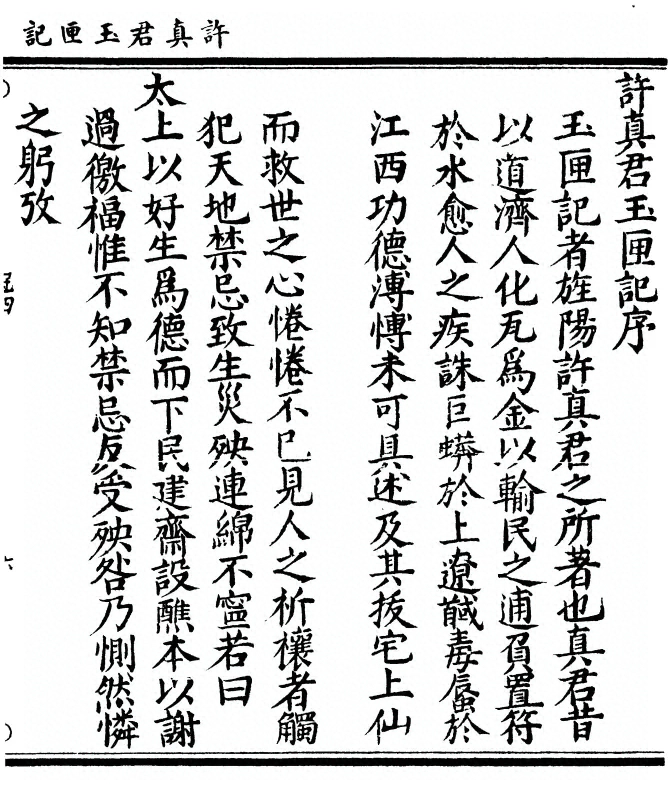 許真君玉匣記
許真君玉匣記序
玉匣記者旌陽許真君之所著也真君昔
以道濟人化瓦爲金以輸民之逋負置符
於水愈人之疾誅巨蟒於上遼馘毒蜃於
江西功德溥愽未可具述及其拔宅上仙
而救世之心惓惓不已見人之祈禳者觸
犯天地禁忌致生災殃連綿不寧若曰
太上以好生爲德而下民建齋設醮本以謝
過徼福惟不知禁忌反受殃咎乃惻然憐
之躬攷
六